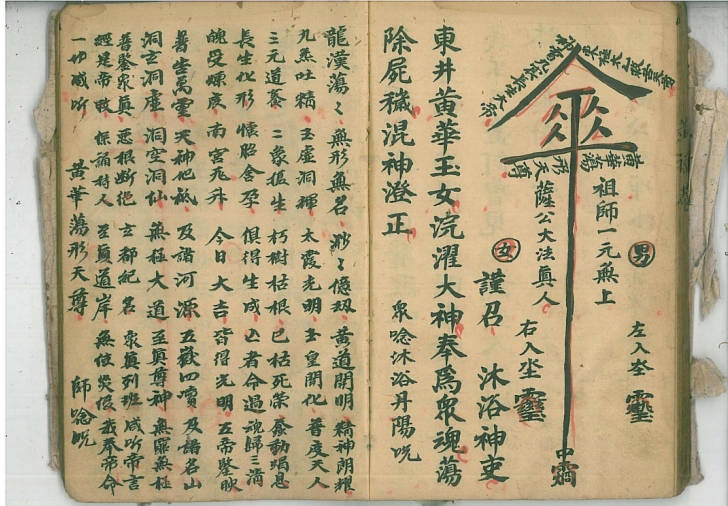 男 左入
祖師一元無上
黃華蕩形天尊
薩公大法真人
女 右入
謹召 沐浴神吏
東井黃華玉女浣濯大神奉為眾魂蕩
除屍穢混神澄正
眾唸沐浴丹陽咒
龍漢蕩々 無形無名 渺々億劫 黃道開明 精神朗耀
九炁吐精 玉虛洞輝 太霞光明 玉皇開化 普度天人
三元道養 二象 生 朽樹枯根 已枯死榮 動蜎息
長生化形 懷胎含孕 俱得生成 亡者命過 魂歸三清
魄受煉度 南宮飛升 今日大吉 皆得光明 五帝鑒映
普告萬靈 天神地祇 及諸河源 五嶽四瀆 及諸名山
洞玄洞虛 洞空洞仙 無極大道 至真尊神 無羅無極
普鑒眾真 惡根斷絕 玄都紀名 眾真列班 咸听帝言
經是帝敕 保 持人 至真道岸 無 災 我奉帝命
一切咸听 黃華蕩形天尊 師唸咒